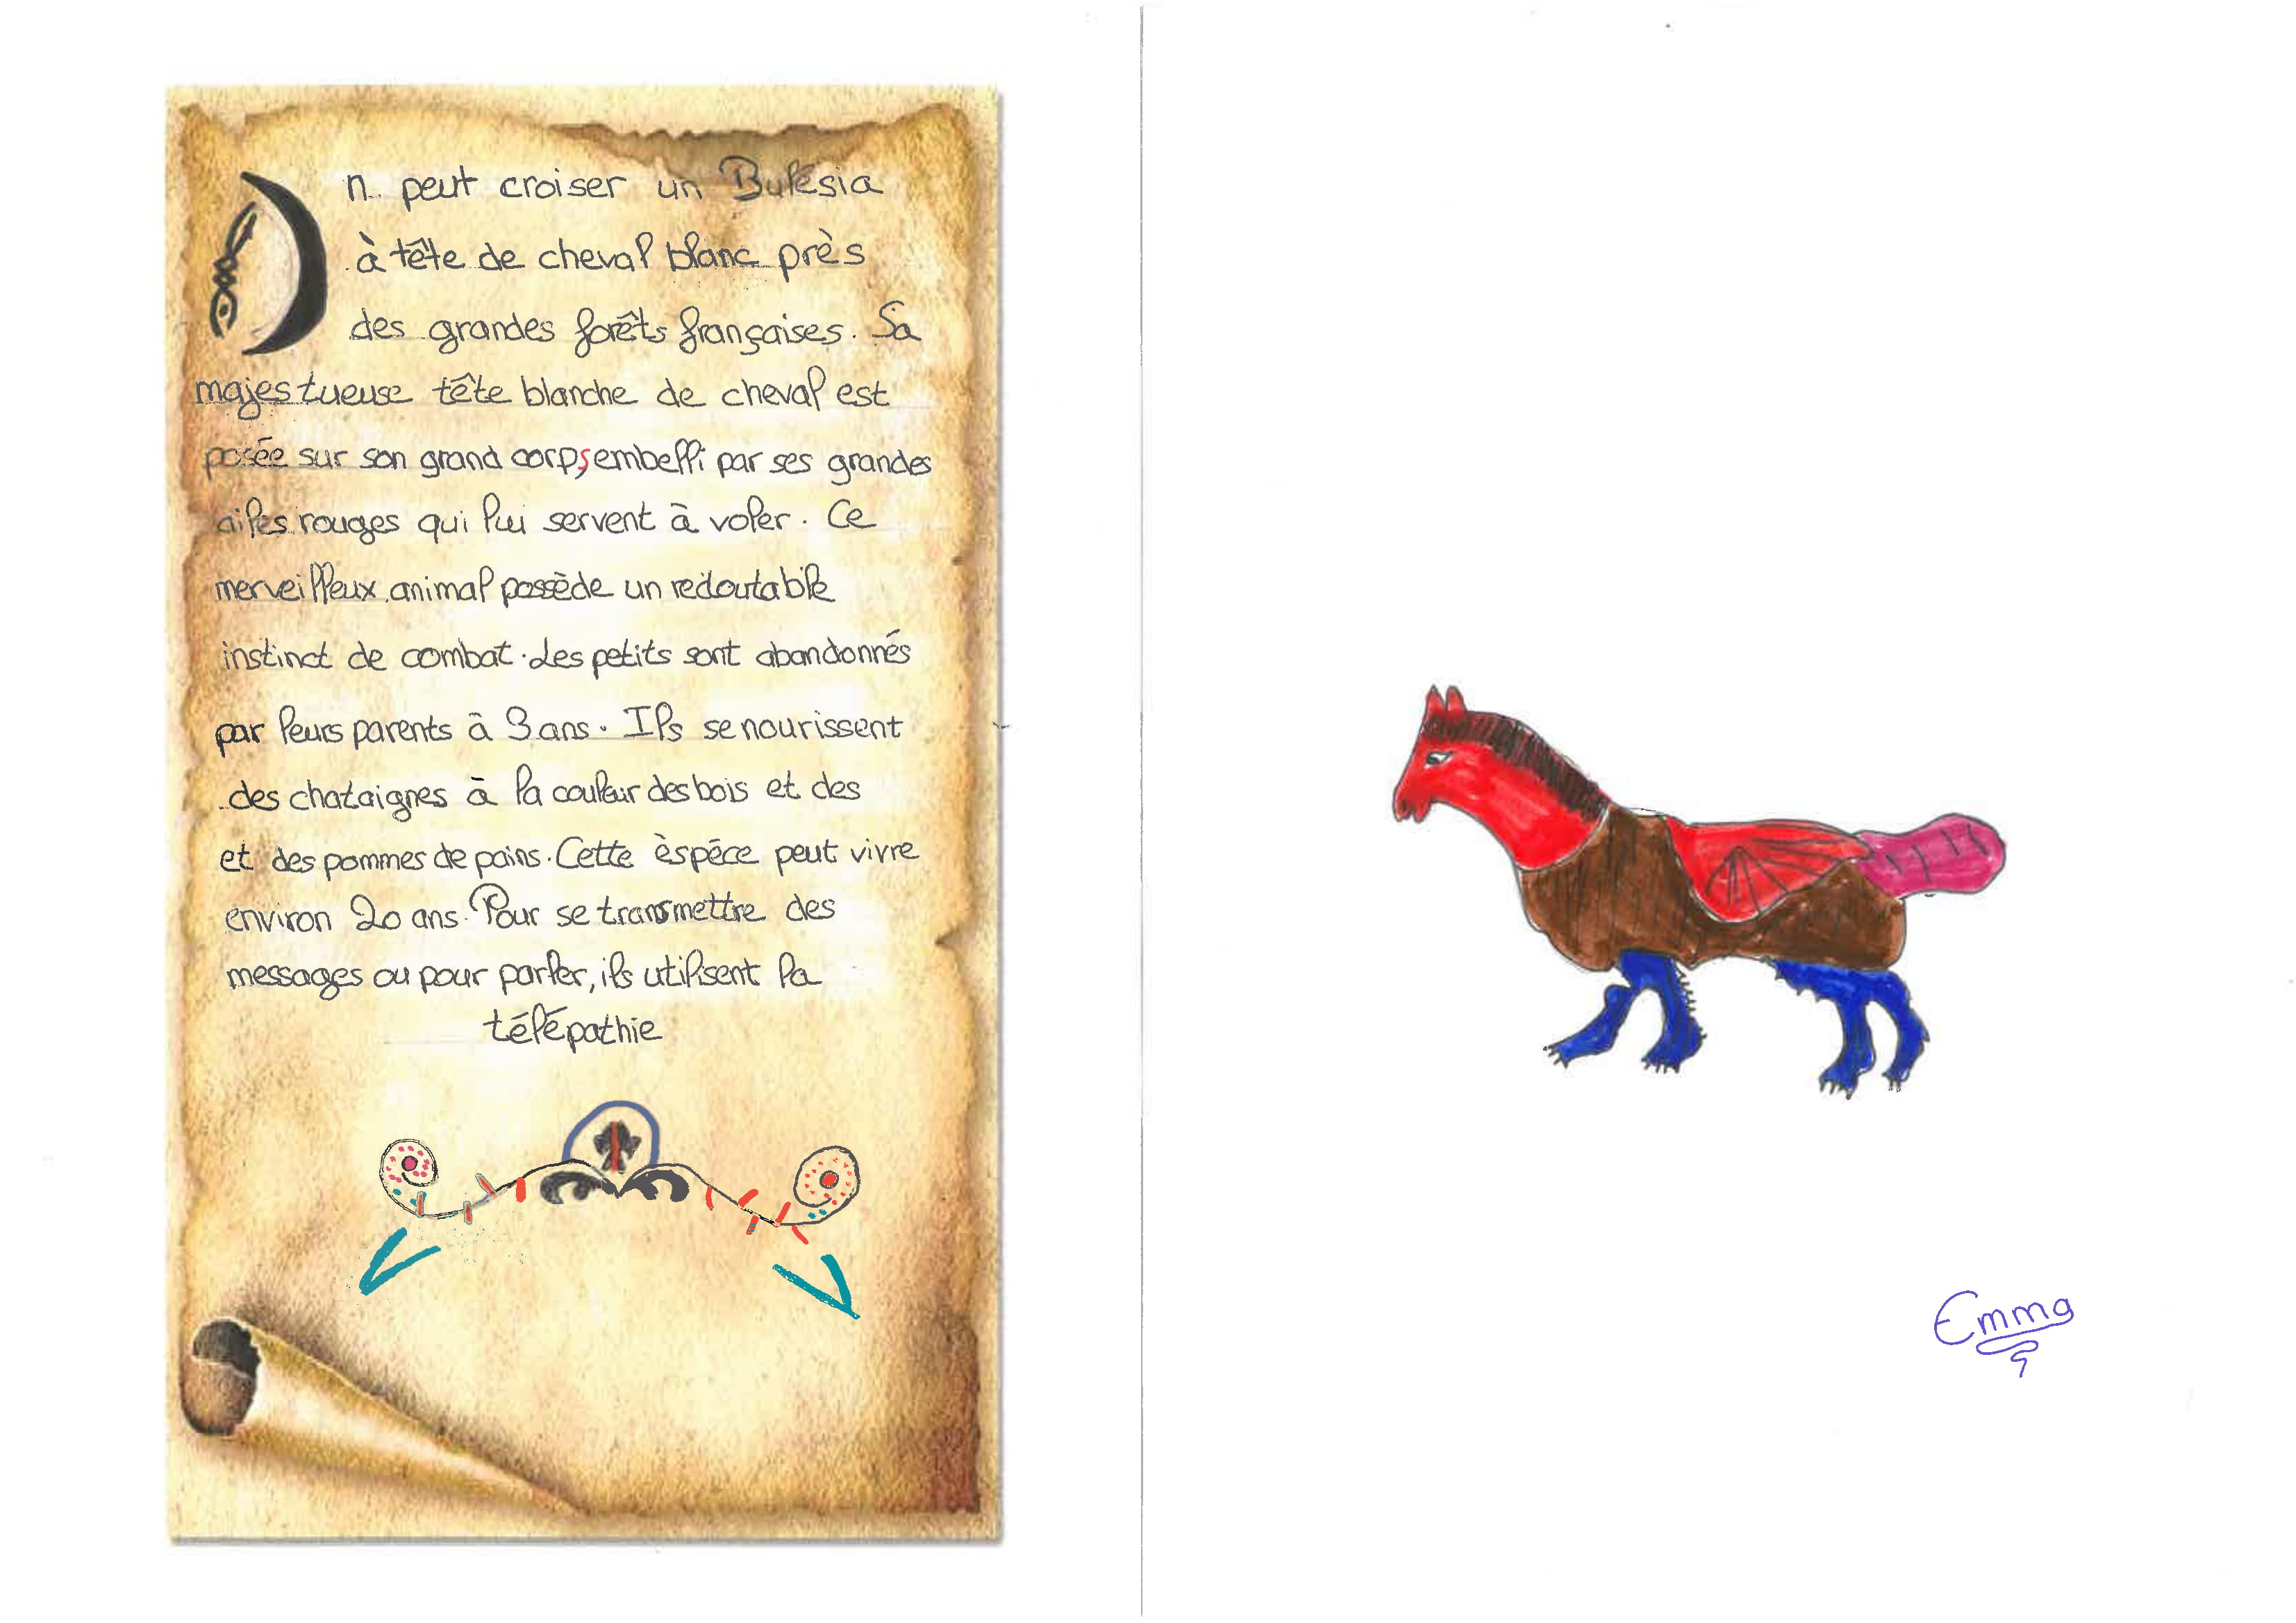 On peut croiser un Bulésia
à tête de cheval blanc près
des grandes forêts françaises. Sa
majestueuse tête blanche de cheval est
posée sur son grand corps embelli par ses grandes
ailes rouges qui lui servent à voler. Ce
merveilleux animal possède un redoutable
instinct de combat. Les petits sont abandonnés
par leurs parents à 3 ans. Ils se nourissent
des chataignes à la couleur des bois et des
et des pommes de pains. Cette èspéce peut vivre
environ 20 ans. Pour se transmettre des
messages ou pour parler, ils utilisent la
télépathie
Emma